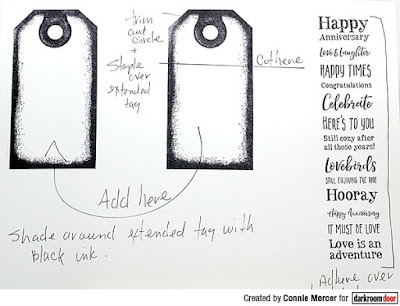 trim
out
circle
+
Staple
over
extended
tag
Cut here
Add here
Shade around extended tag with
black ink.
Happy
Anniversary
Love & Laughter
HAPPY TIMES
Congratulations
Celebrate
HERE'S TO YOU
Still cozy after
all these years!
Lovebirds
STILL ENJOYING THE RIDE
Hooray
Happy Anniversary
IT MUST BE LOVE
Love is an
adventure
Adhere over
Created by Connie Mercer for darkroom door